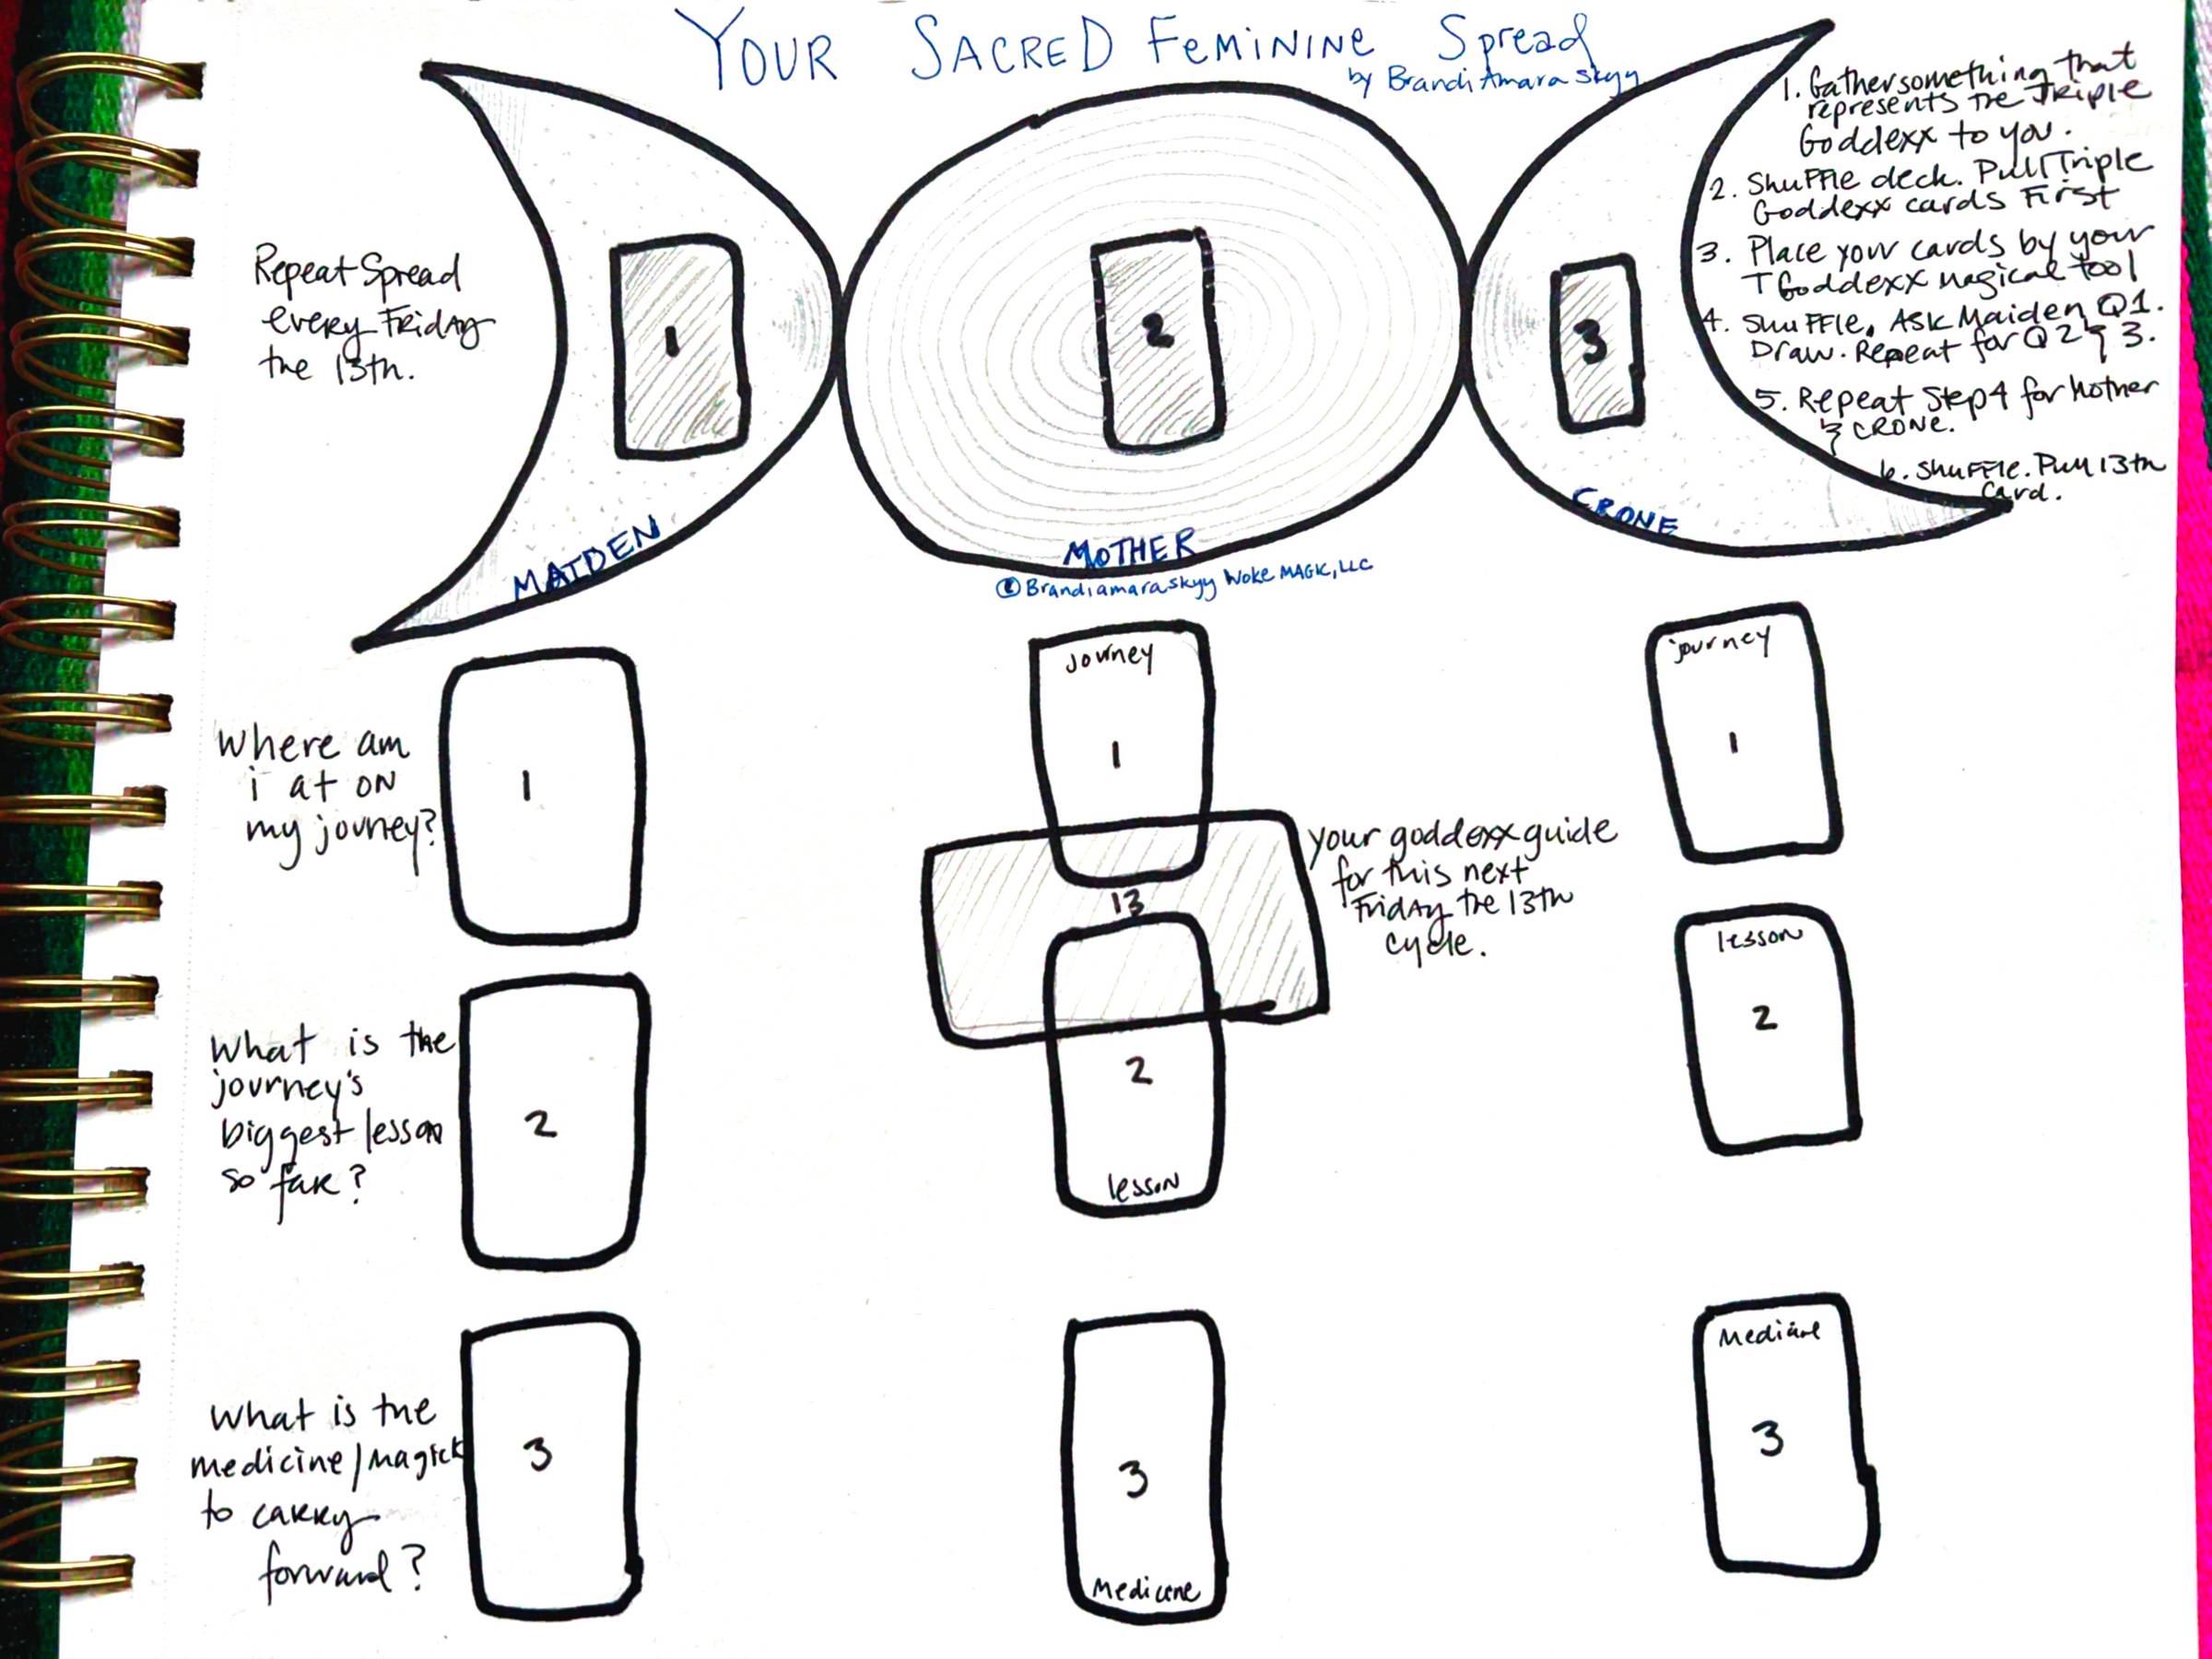 YOUR SACRED FEMININE Spread
by Brandi Amara Skyy
Repeat Spread
every Friday
the 13th.
1
MAIDEN
2
MOTHER
3
CRONE
1. Gather something that
represents the Triple
Goddexx to you.
2. Shuffle deck. Pull Triple
Goddexx cards First
3. Place your cards by your
TGoddexx magical tool
4. Shuffle. Ask Maiden Q1.
Draw. Repeat for Q2 & 3.
5. Repeat Step 4 for Mother
& CRONE.
6. Shuffle. Pull 13th
Card.
© Brandiamaraskyy Woke MAGIC, LLC
Where am
i at on
my journey?
1
journey
1
journey
1
13
your goddexx guide
for this next
Friday the 13th
cycle.
What is the
journey's
biggest lesson
so far?
2
2
lesson
lesson
2
What is the
medicine/magick
to carry
forward?
3
3
Medicine
Medicine
3